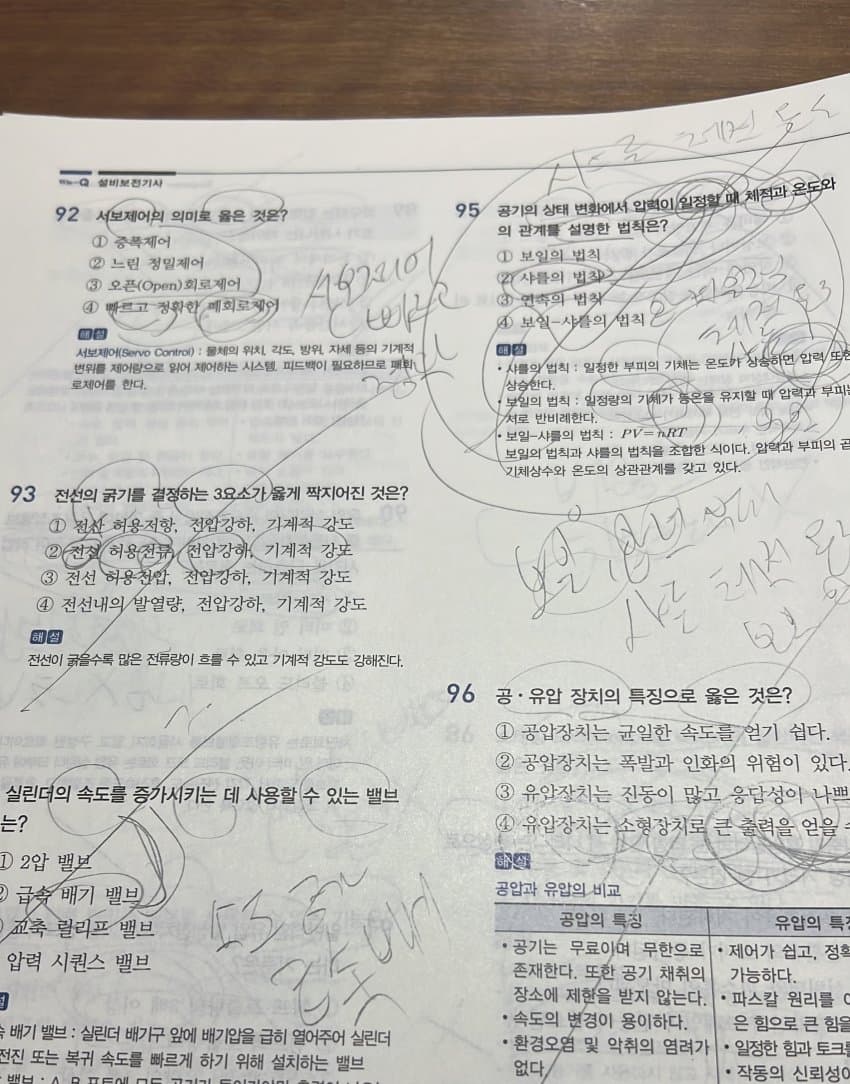 설비보전기사
92 서보제어의 의미로 옳은 것은?
① 증폭제어
② 느린 정밀제어
③ 오픈(Open)회로제어
④ 빠르고 정확한 폐회로제어
해설
서보제어(Servo Control) : 물체의 위치, 각도, 방위, 자세 등의 기계적
변위를 제어량으로 읽어 제어하는 시스템, 피드백이 필요하므로 폐회
로제어를 한다.
93 전선의 굵기를 결정하는 3요소가 옳게 짝지어진 것은?
① 전선 허용저항, 전압강하, 기계적 강도
② 전선 허용전류, 전압강하, 기계적 강도
③ 전선 허용전압, 전압강하, 기계적 강도
④ 전선내의 발열량, 전압강하, 기계적 강도
해설
전선이 굵을수록 많은 전류량이 흐를 수 있고 기계적 강도도 강해진다.
실린더의 속도를 증가시키는 데 사용할 수 있는 밸브
는?
① 2압 밸브
② 급속 배기 밸브
교축 릴리프 밸브
압력 시퀀스 밸브
배기 밸브 : 실린더 배기구 앞에 배기압을 급히 열어주어 실린더
전진 또는 복귀 속도를 빠르게 하기 위해 설치하는 밸브
95 공기의 상태 변화에서 압력이 일정할 때 체적과 온도와
의 관계를 설명한 법칙은?
① 보일의 법칙
② 샤를의 법칙
③ 연속의 법칙
④ 보일-샤를의 법칙
해설
• 샤를의 법칙 : 일정한 부피의 기체는 온도가 상승하면 압력 또한
상승한다.
• 보일의 법칙 : 일정량의 기체가 등온을 유지할 때 압력과 부피는
서로 반비례한다.
• 보일-샤를의 법칙 : PV=nRT
보일의 법칙과 샤를의 법칙을 조합한 식이다. 압력과 부피의 곱
기체상수와 온도의 상관관계를 갖고 있다.
96 공·유압 장치의 특징으로 옳은 것은?
① 공압장치는 균일한 속도를 얻기 쉽다.
② 공압장치는 폭발과 인화의 위험이 있다.
③ 유압장치는 진동이 많고 응답성이 나쁘
④ 유압장치는 소형장치로 큰 출력을 얻을 수
해설
공압과 유압의 비교
공압의 특징
유압의 특징
• 공기는 무료이며 무한으로
존재한다. 또한 공기 채취의
장소에 제한을 받지 않는다.
• 속도의 변경이 용이하다.
• 환경오염 및 악취의 염려가
없다.
• 제어가 쉽고, 정확
가능하다.
• 파스칼 원리를 이
은 힘으로 큰 힘을
• 일정한 힘과 토크를
• 작동의 신뢰성이